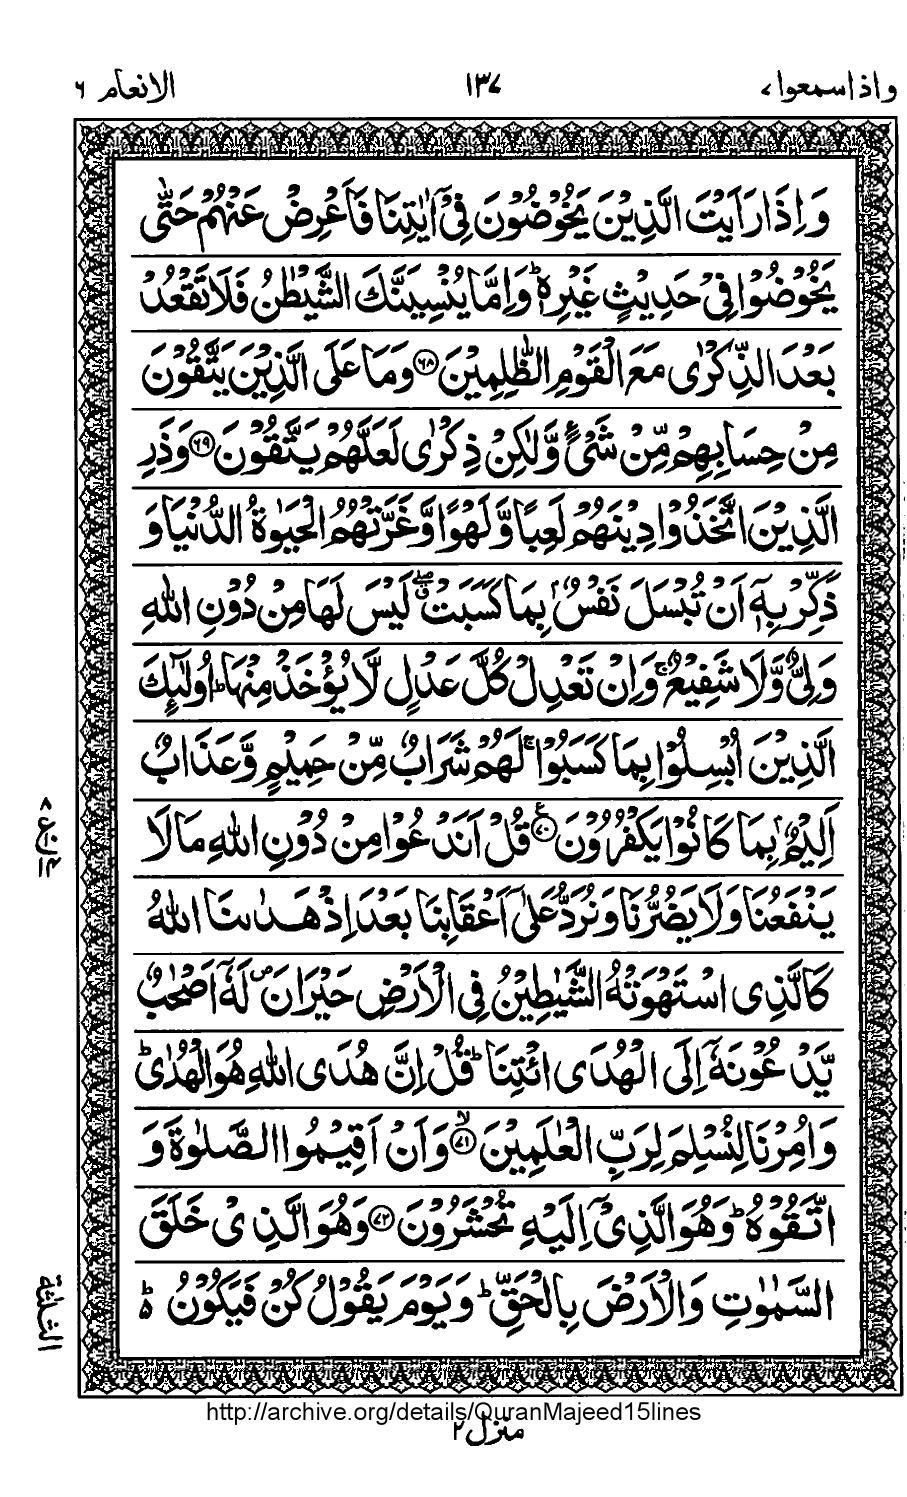 واذاسمعوا ۷
۱۳۷
الانعام ۶
وَاِذَا رَاَيْتَ الَّذِيْنَ يَخُوْضُوْنَ فِيْٓ اٰيٰتِنَا فَاَعْرِضْ عَنْهُمْ حَتّٰى
يَخُوْضُوْا فِيْ حَدِيْثٍ غَيْرِهٖ ؕ وَاِمَّا يُنْسِيَنَّكَ الشَّيْطٰنُ فَلَا تَقْعُدْ
بَعْدَ الذِّكْرٰى مَعَ الْقَوْمِ الظّٰلِمِيْنَ ۶۸ وَمَا عَلَى الَّذِيْنَ يَتَّقُوْنَ
مِنْ حِسَابِهِمْ مِّنْ شَيْءٍ وَّلٰكِنْ ذِكْرٰى لَعَلَّهُمْ يَتَّقُوْنَ ۶۹ وَذَرِ
الَّذِيْنَ اتَّخَذُوْا دِيْنَهُمْ لَعِبًا وَّلَهْوًا وَّغَرَّتْهُمُ الْحَيٰوةُ الدُّنْيَا وَ
ذَكِّرْ بِهٖٓ اَنْ تُبْسَلَ نَفْسٌۢ بِمَا كَسَبَتْ ۖ لَيْسَ لَهَا مِنْ دُوْنِ اللّٰهِ
وَلِيٌّ وَّلَا شَفِيْعٌ ۚ وَاِنْ تَعْدِلْ كُلَّ عَدْلٍ لَّا يُؤْخَذْ مِنْهَا ؕ اُولٰٓئِكَ
الَّذِيْنَ اُبْسِلُوْا بِمَا كَسَبُوْا ۚ لَهُمْ شَرَابٌ مِّنْ حَمِيْمٍ وَّعَذَابٌ
اَلِيْمٌۢ بِمَا كَانُوْا يَكْفُرُوْنَ ۷۰ ع قُلْ اَنَدْعُوْا مِنْ دُوْنِ اللّٰهِ مَا لَا
يَنْفَعُنَا وَلَا يَضُرُّنَا وَنُرَدُّ عَلٰٓى اَعْقَابِنَا بَعْدَ اِذْ هَدٰىنَا اللّٰهُ
كَالَّذِى اسْتَهْوَتْهُ الشَّيٰطِيْنُ فِى الْاَرْضِ حَيْرَانَ ۪ لَهٗٓ اَصْحٰبٌ
يَّدْعُوْنَهٗٓ اِلَى الْهُدَى ائْتِنَا ؕ قُلْ اِنَّ هُدَى اللّٰهِ هُوَ الْهُدٰى ؕ
وَاُمِرْنَا لِنُسْلِمَ لِرَبِّ الْعٰلَمِيْنَ ۷۱ۙ وَاَنْ اَقِيْمُوا الصَّلٰوةَ وَ
اتَّقُوْهُ ؕ وَهُوَ الَّذِيْٓ اِلَيْهِ تُحْشَرُوْنَ ۷۲ وَهُوَ الَّذِيْ خَلَقَ
السَّمٰوٰتِ وَالْاَرْضَ بِالْحَقِّ ؕ وَيَوْمَ يَقُوْلُ كُنْ فَيَكُوْنُ ؕ
الثلثة
http://archive.org/details/QuranMajeed15lines
منزل ۲